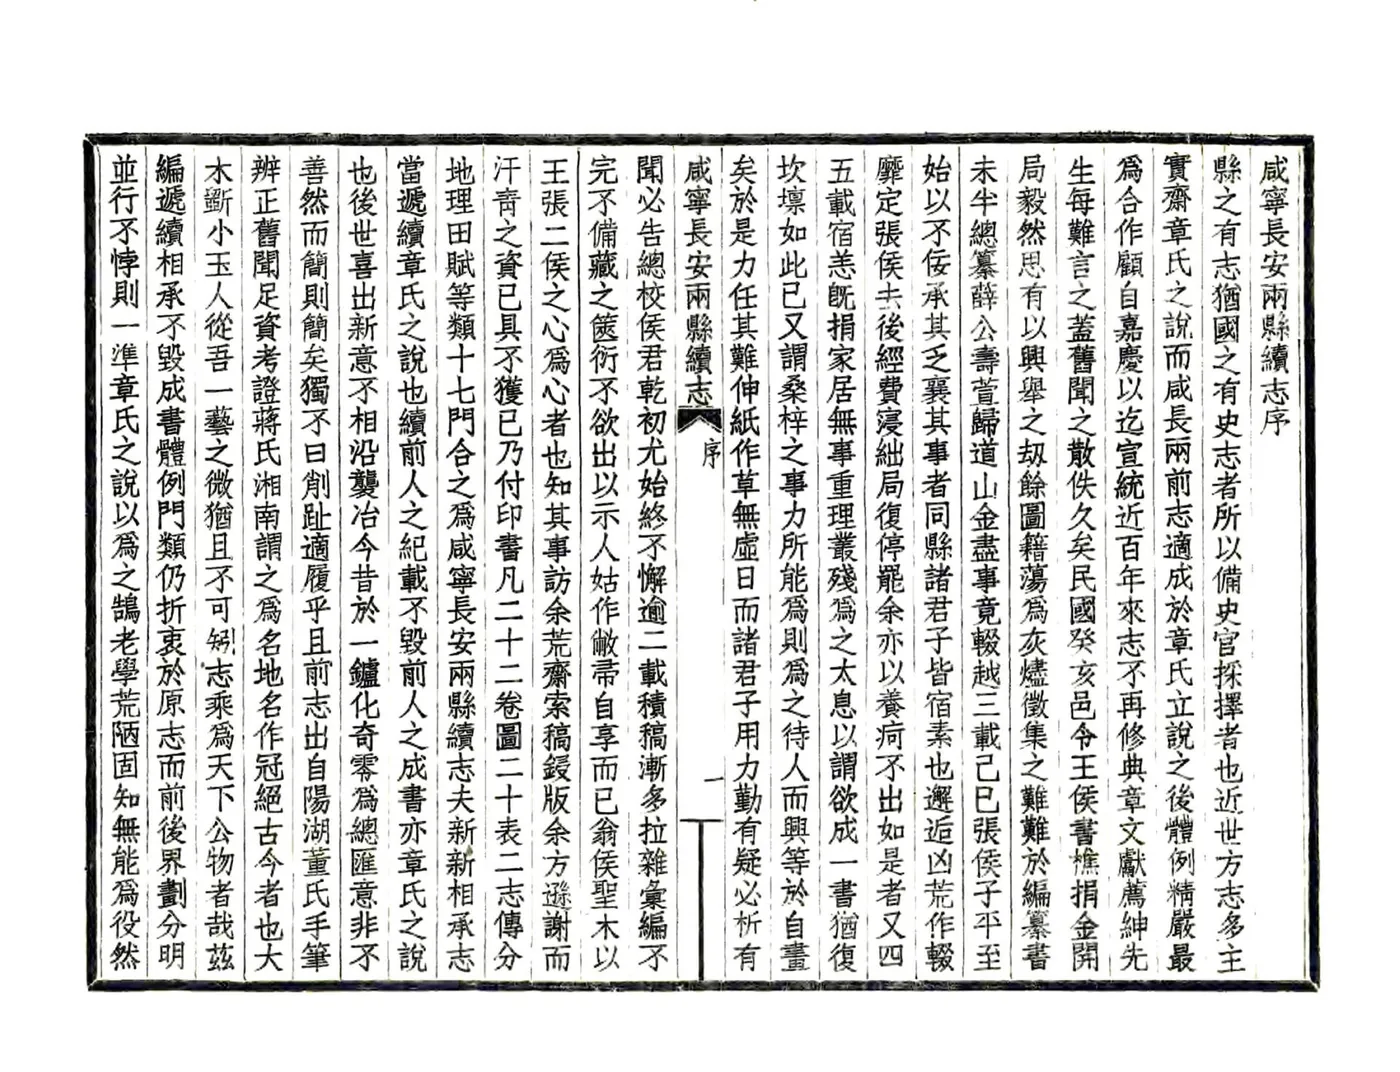 咸寧長安兩縣續志序
縣之有志猶國之有史志者所以備史官採擇者也近世方志多主
實齋章氏之說而咸長兩前志適成於章氏立說之後體例精嚴最
爲合作顧自嘉慶以迄宣統近百年來志不再修典章文獻薦紳先
生每難言之蓋舊聞之散佚久矣民國癸亥邑令王侯書樵捐金開
局毅然思有以興舉之刼餘圖籍蕩爲灰燼徵集之難難於編纂書
未半總纂薛公壽萱歸道山金盡事竟輟越三載己巳張侯子平至
始以不佞承其乏襄其事者同縣諸君子皆宿素也邂逅凶荒作輟
靡定張侯去後經費寖絀局復停罷余亦以養疴不出如是者又四
五載宿恙旣捐家居無事重理叢殘爲之太息以謂欲成一書猶復
坎壈如此已又謂桑梓之事力所能爲則爲之待人而興等於自畫
矣於是力任其難伸紙作草無虛日而諸君子用力勤有疑必析有
咸寧長安兩縣續志 序 一
聞必告總校侯君乾初尤始終不懈逾二載積稿漸多拉雜彙編不
完不備藏之篋衍不欲出以示人姑作敝帚自享而已翁侯聖木以
王張二侯之心爲心者也知其事訪余荒齋索稿鋟版余方遜謝而
汗靑之資已具不獲已乃付印書凡二十二卷圖二十表二志傳分
地理田賦等類十七門合之爲咸寧長安兩縣續志夫新新相承志
當遞續章氏之說也續前人之紀載不毀前人之成書亦章氏之說
也後世喜出新意不相沿襲冶今昔於一鑪化奇零爲總匯意非不
善然而簡則簡矣獨不曰削趾適履乎且前志出自陽湖董氏手筆
辨正舊聞足資考證蔣氏湘南謂之爲名地名作冠絕古今者也大
木斵小玉人從吾一藝之微猶且不可矧志乘爲天下公物者哉茲
編遞續相承不毀成書體例門類仍折衷於原志而前後界劃分明
並行不悖則一準章氏之說以爲之鵠老學荒陋固知無能爲役然